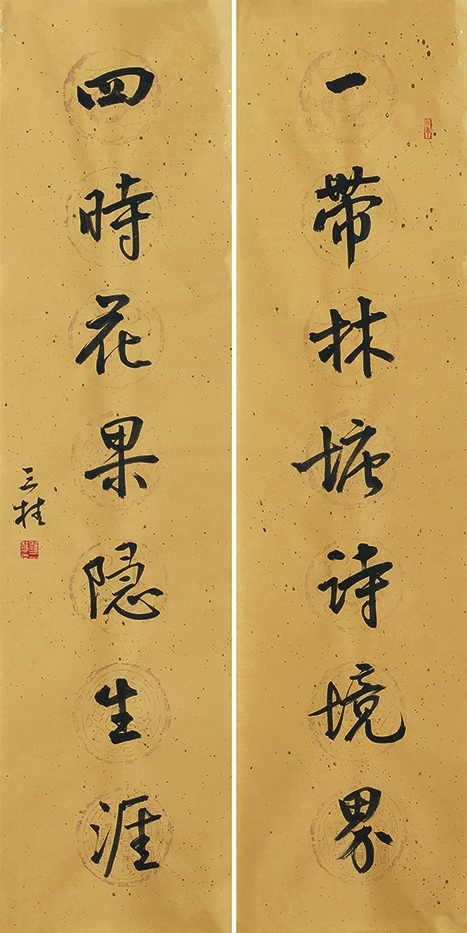 一带林塘诗境界
四時花果隐生涯
三桂